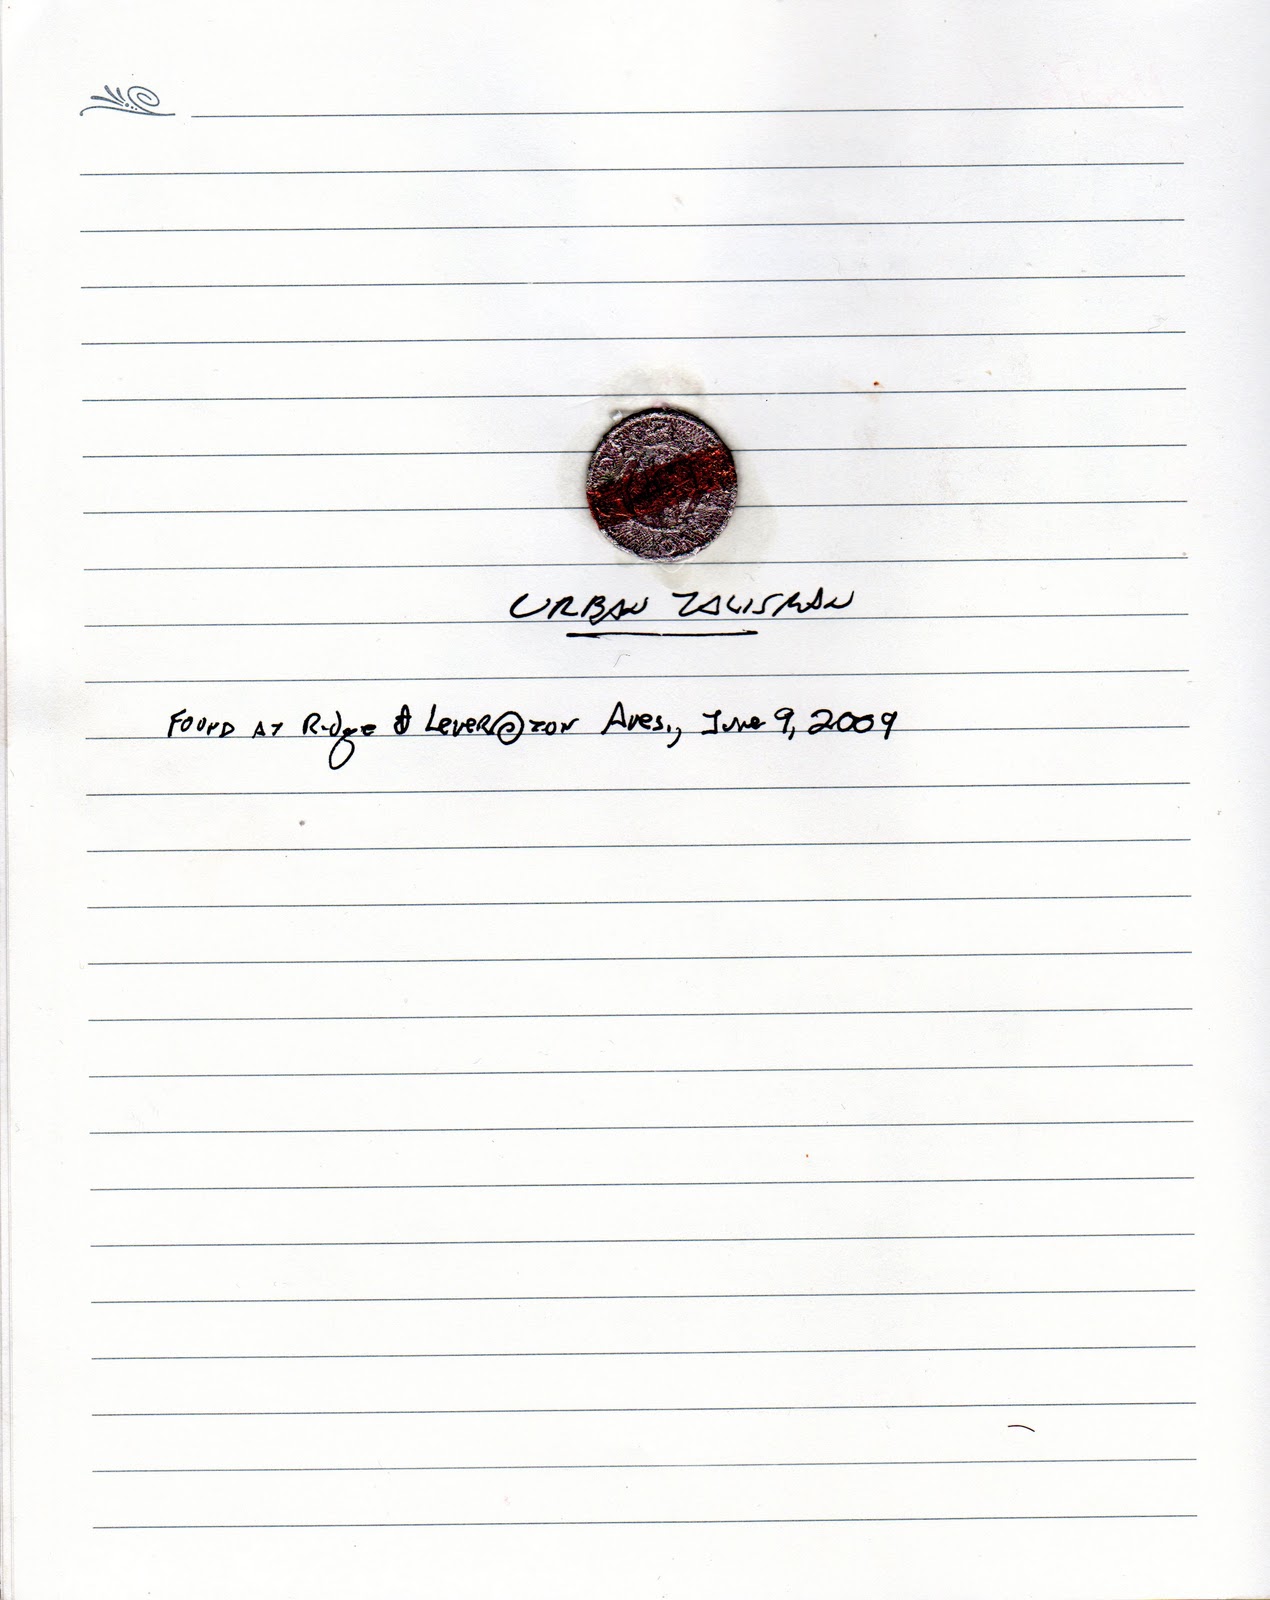 URBAN TALISMAN
FOUND AT Ridge & Lever@TON Aves., June 9, 2009